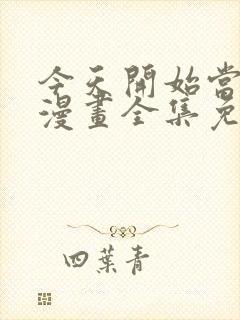 今天開始當
漫畫全集免
四葉青